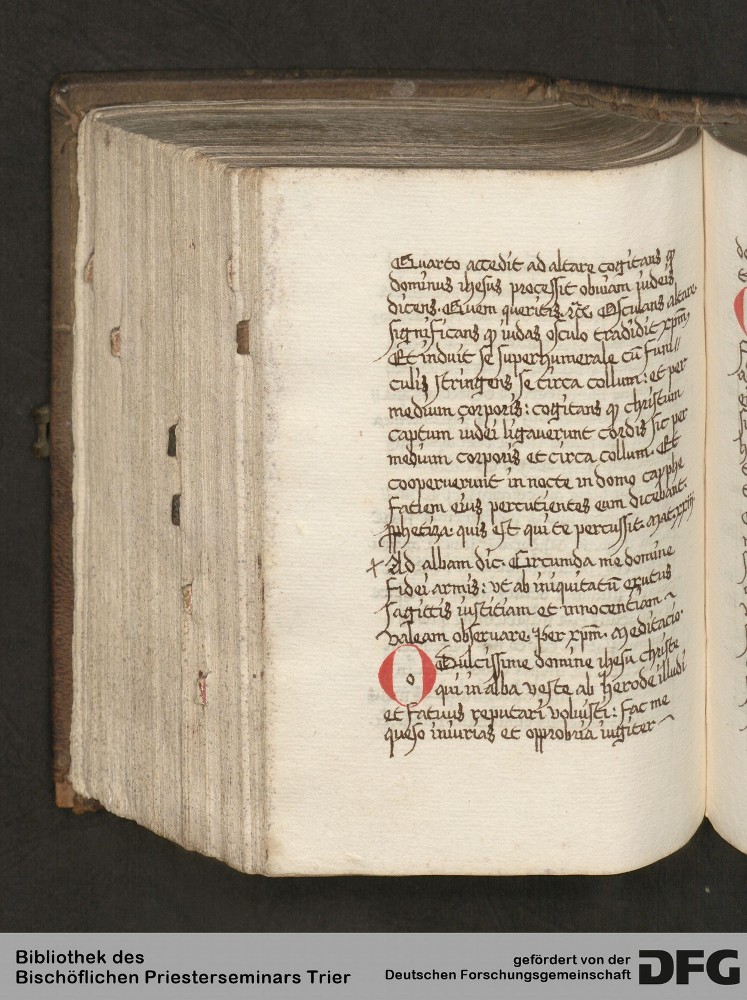 Quarto accedit ad altare cogitans ꝙ
dominus ihesus processit obuiam iudeis
dicens. Quem queritis. Osculans altare.
significans ꝙ iudas osculo tradidit xp̄m,
Et induit se superhumerale cū funi//
culis stringens se circa collum: et per
medium corporis: cogitans ꝙ christum
captum iudei ligauerunt cordis sic per
medium corporis et circa collum. Et
cooperuerunt in nocte in domo cayphe
faciem eius percutientes eum dicebant.
ꝓphetiza. quis est qui te percussit. Mat. xxiij
+ Ad albam dic. Circumda me domine
fidei armis: vt ab iniquitatū exutus
sagittis iustitiam et innocentiam
valeam obseruare. Per xp̄m. Meditacio.
O Dulcissime domine ihesu christe
qui in alba veste ab herode illudi
et fatuus reputari voluisti: fac me
queso iniurias et opprobria iugiter
Bibliothek des
Bischöflichen Priesterseminars Trier
gefördert von der
Deutschen Forschungsgemeinschaft DFG